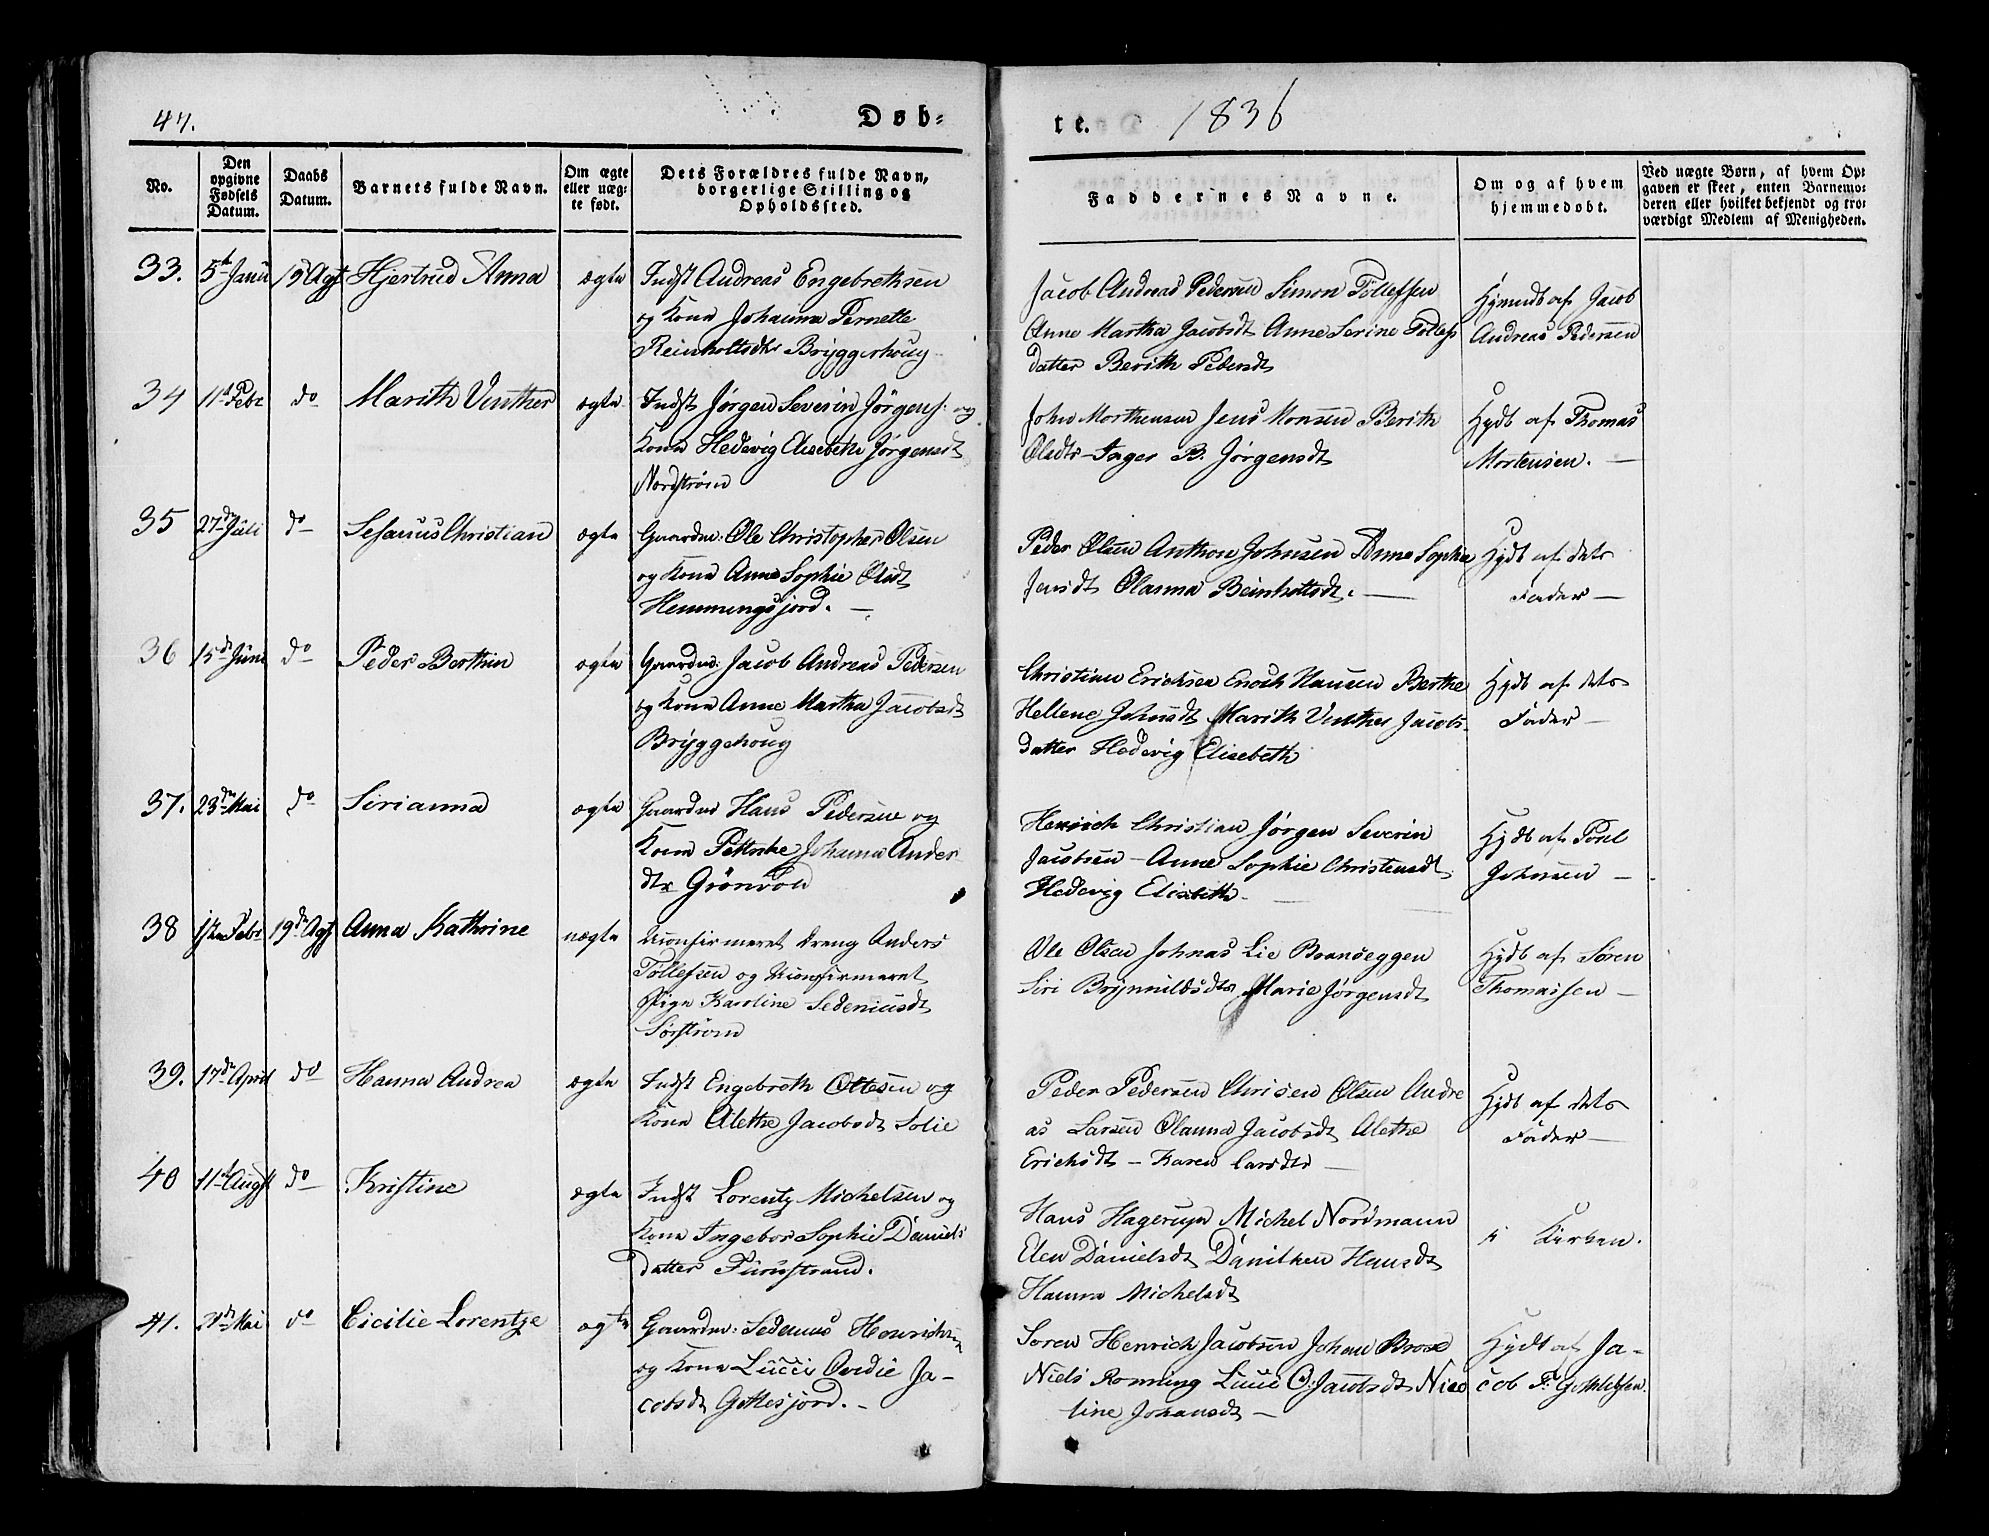 47.
Døb-
te.
1836
No.
Den opgivne Fødsels Datum.
Daabs Datum.
Barnets fulde Navn.
Om ægte eller uægte født.
Dets Forældres fulde Navn, borgerlige Stilling og Opholdssted.
Faddernes Navne.
Om og af hvem hjemmedøbt.
Ved uægte Børn, af hvem Opgaven er skeet, enten Barnemoderen eller hvilket bekjendt og troværdigt Medlem af Menigheden.
33. 5t Juni 19 Agst Hjertrud Anna ægte Indst Andreas Engebrethsen
og Kone Johanna Pernette
Reinholtsdtr Bryggerhoug
Jacob Andreas Pedersen Simon Tøllefsen
Anne Martha Jacobsdt Anne Serine Tøllefs
datter Berith Pedersdt
Hjemdt af Jacob
Andreas Pedersen
34 11t Febr do Marith Vinther ægte Indst Jørgen Severin Jørgens. og
Kone Hedevig Elisebeth Jørgensdt
Nordstrøm
John Morthensen Jens Monsen Berith
Olsdtr Inger B. Jørgensdt
Hjdt af Thomas
Mortensen.
35 27de Juli do Sefanius Christian ægte Gaardm: Ole Christopher Olsen
og Kone Anne Sophie Olsdt
Hemmingsjord.
Peder Olsen Anthon Johnsen Anne Sophie
Jensdt Olanna Reinholtsdt.
Hjdt af dets
Fader
36 15de Juni do Peder Berthin ægte Gaardm: Jacob Andreas Pedersen
og Kone Anne Martha Jacobsdt
Bryggehoug
Christian Ericksen Enoch Hansen Berthe
Hellene Johnsdt Marith Vinther Jacobs
datter Hedevig Elisebeth
Hjdt af dets
Fader
37. 23de Mai do Sirianna ægte Gaardm Hans Pedersen og
Kone Petrike Johanna Anders
dtr Grønvold
Henrich Christian Jørgen Severin
Jacobsen - Anne Sophie Christensdt
Hedevig Elisbeth
Hjdt af Poul
Johnsen
38 Febr 19de Agst Anna Kathrine uægte Ukonfirmeret Dreng Anders
Tøllefsen og Ukonfirmeret
Pige Karoline Sedeniusdt
Sørstrøm
Ole Olsen Johnas Lie Brandseggen
Siri Brynnildsdtr Marie Jørgensdt
Hjdt af Søren
Thomassen
39. 17de April do Hanna Andrea ægte Indst Engebreth Ottesen og
Kone Alethe Jacobsdt Solie
Peder Pedersen Chrisen Olsen Andre
as Larsen Olanna Jacobsdt Alethe
Erichsdt - Karen Larsdtr
Hjdt af dets
Fader
40 11t Augst do Kristine ægte Indst Lorentz Michelsen og
Kone Ingebor Sophie Daniels
datter Furustrand.
Hans Hagerup Michel Nordmann
Elen Danielsdt Danithen Hansdt
Hanna Michelsdt
i Kirken.
41. Mai do Cicilie Lorentze ægte Gaardm: Sedenius Henrichsen
og Kone Lucci Ovidie Ja-
cobsdt Gottesjord.
Soren Henrich Jacobsen Johan Brose
Niels Romung Lucie O: Jacobsdt Nico
line Johansdt
Hjdt af Ja-
cob F: Gothelfsen.